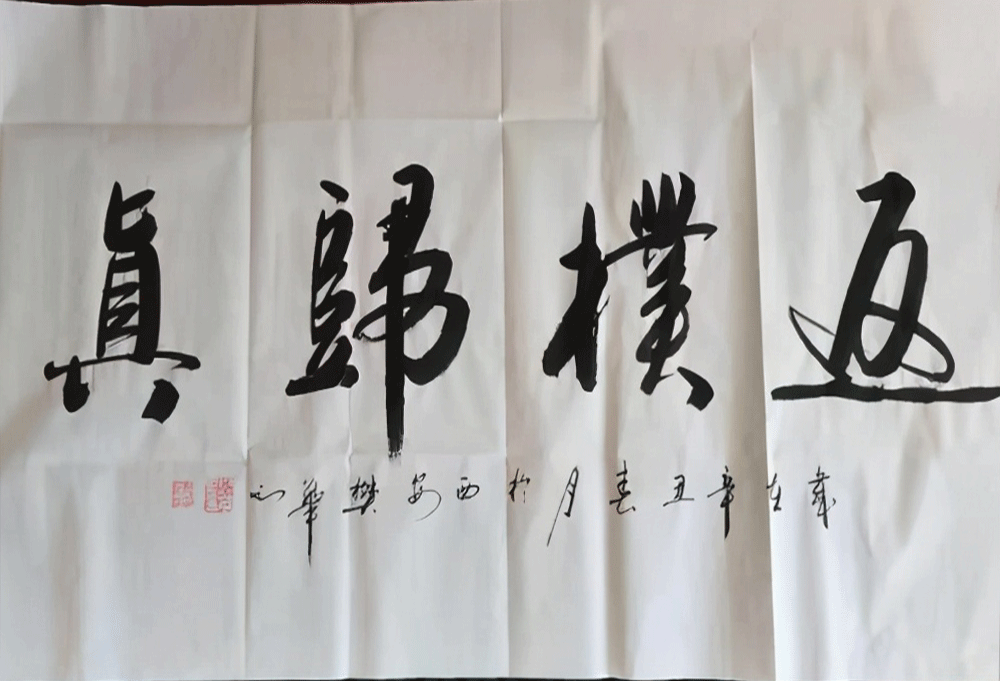 返樸歸真
歲在辛丑春月於西安樊華